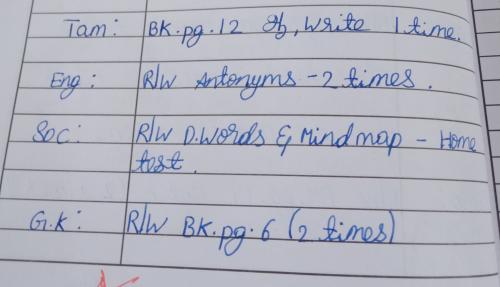 Tam: BK.pg.12 write 1 time.
Eng: R/W Antonyms - 2 times.
Soc: R/W D.Words & Mindmap - Home
test.
G.K: R/W BK.pg.6 (2 times)